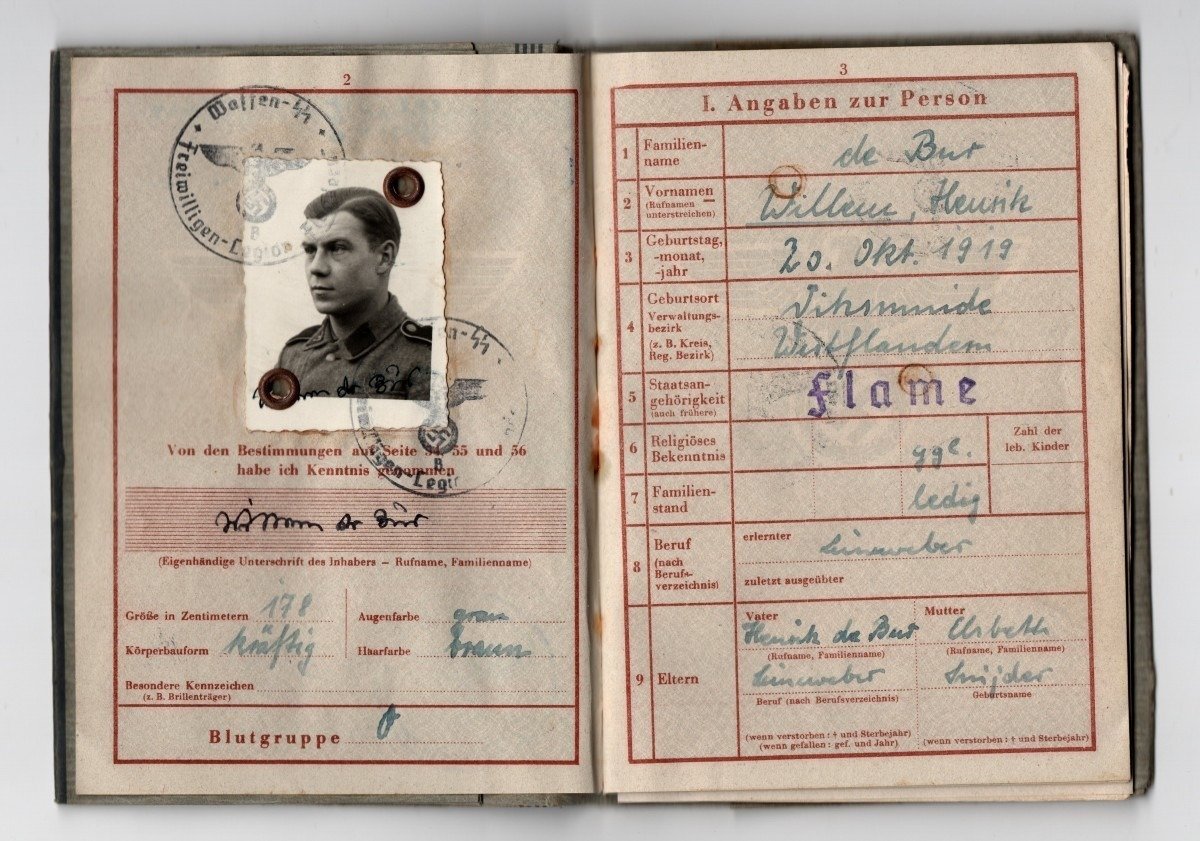 2
Waffen-SS
Freiwilligen-Legion
Waffen-SS
Freiwilligen-Legion
de Bur
Von den Bestimmungen auf Seite 34, 35 und 36
habe ich Kenntnis genommen
de Bur
(Eigenhändige Unterschrift des Inhabers — Rufname, Familienname)
Größe in Zentimetern 178 Augenfarbe grau
Körperbauform kräftig Haarfarbe braun
Besondere Kennzeichen
(z. B. Brillenträger)
Blutgruppe 0
3
I. Angaben zur Person
1 Familien-
name de Bur
2 Vornamen
(Rufnamen
unterstreichen) Willem, Henrik
3 Geburtstag,
-monat,
-jahr 20. Okt. 1919
4 Geburtsort
Verwaltungs-
bezirk
(z. B. Kreis,
Reg. Bezirk)
Diksmuide
Westflandern
5 Staatsan-
gehörigkeit
(auch frühere) flame
6 Religiöses
Bekenntnis ggl.
Zahl der
leb. Kinder
7 Familien-
stand ledig
8 Beruf
(nach
Berufs-
verzeichnis)
erlernter Leineweber
zuletzt ausgeübter
9 Eltern
Vater Mutter
Henrik de Bur Elsbeth
(Rufname, Familienname) (Rufname, Familienname)
Leineweber Snijder
Beruf (nach Berufsverzeichnis) Geburtsname
(wenn verstorben: † und Sterbejahr)
(wenn gefallen: gef. und Jahr) (wenn verstorben: † und Sterbejahr)